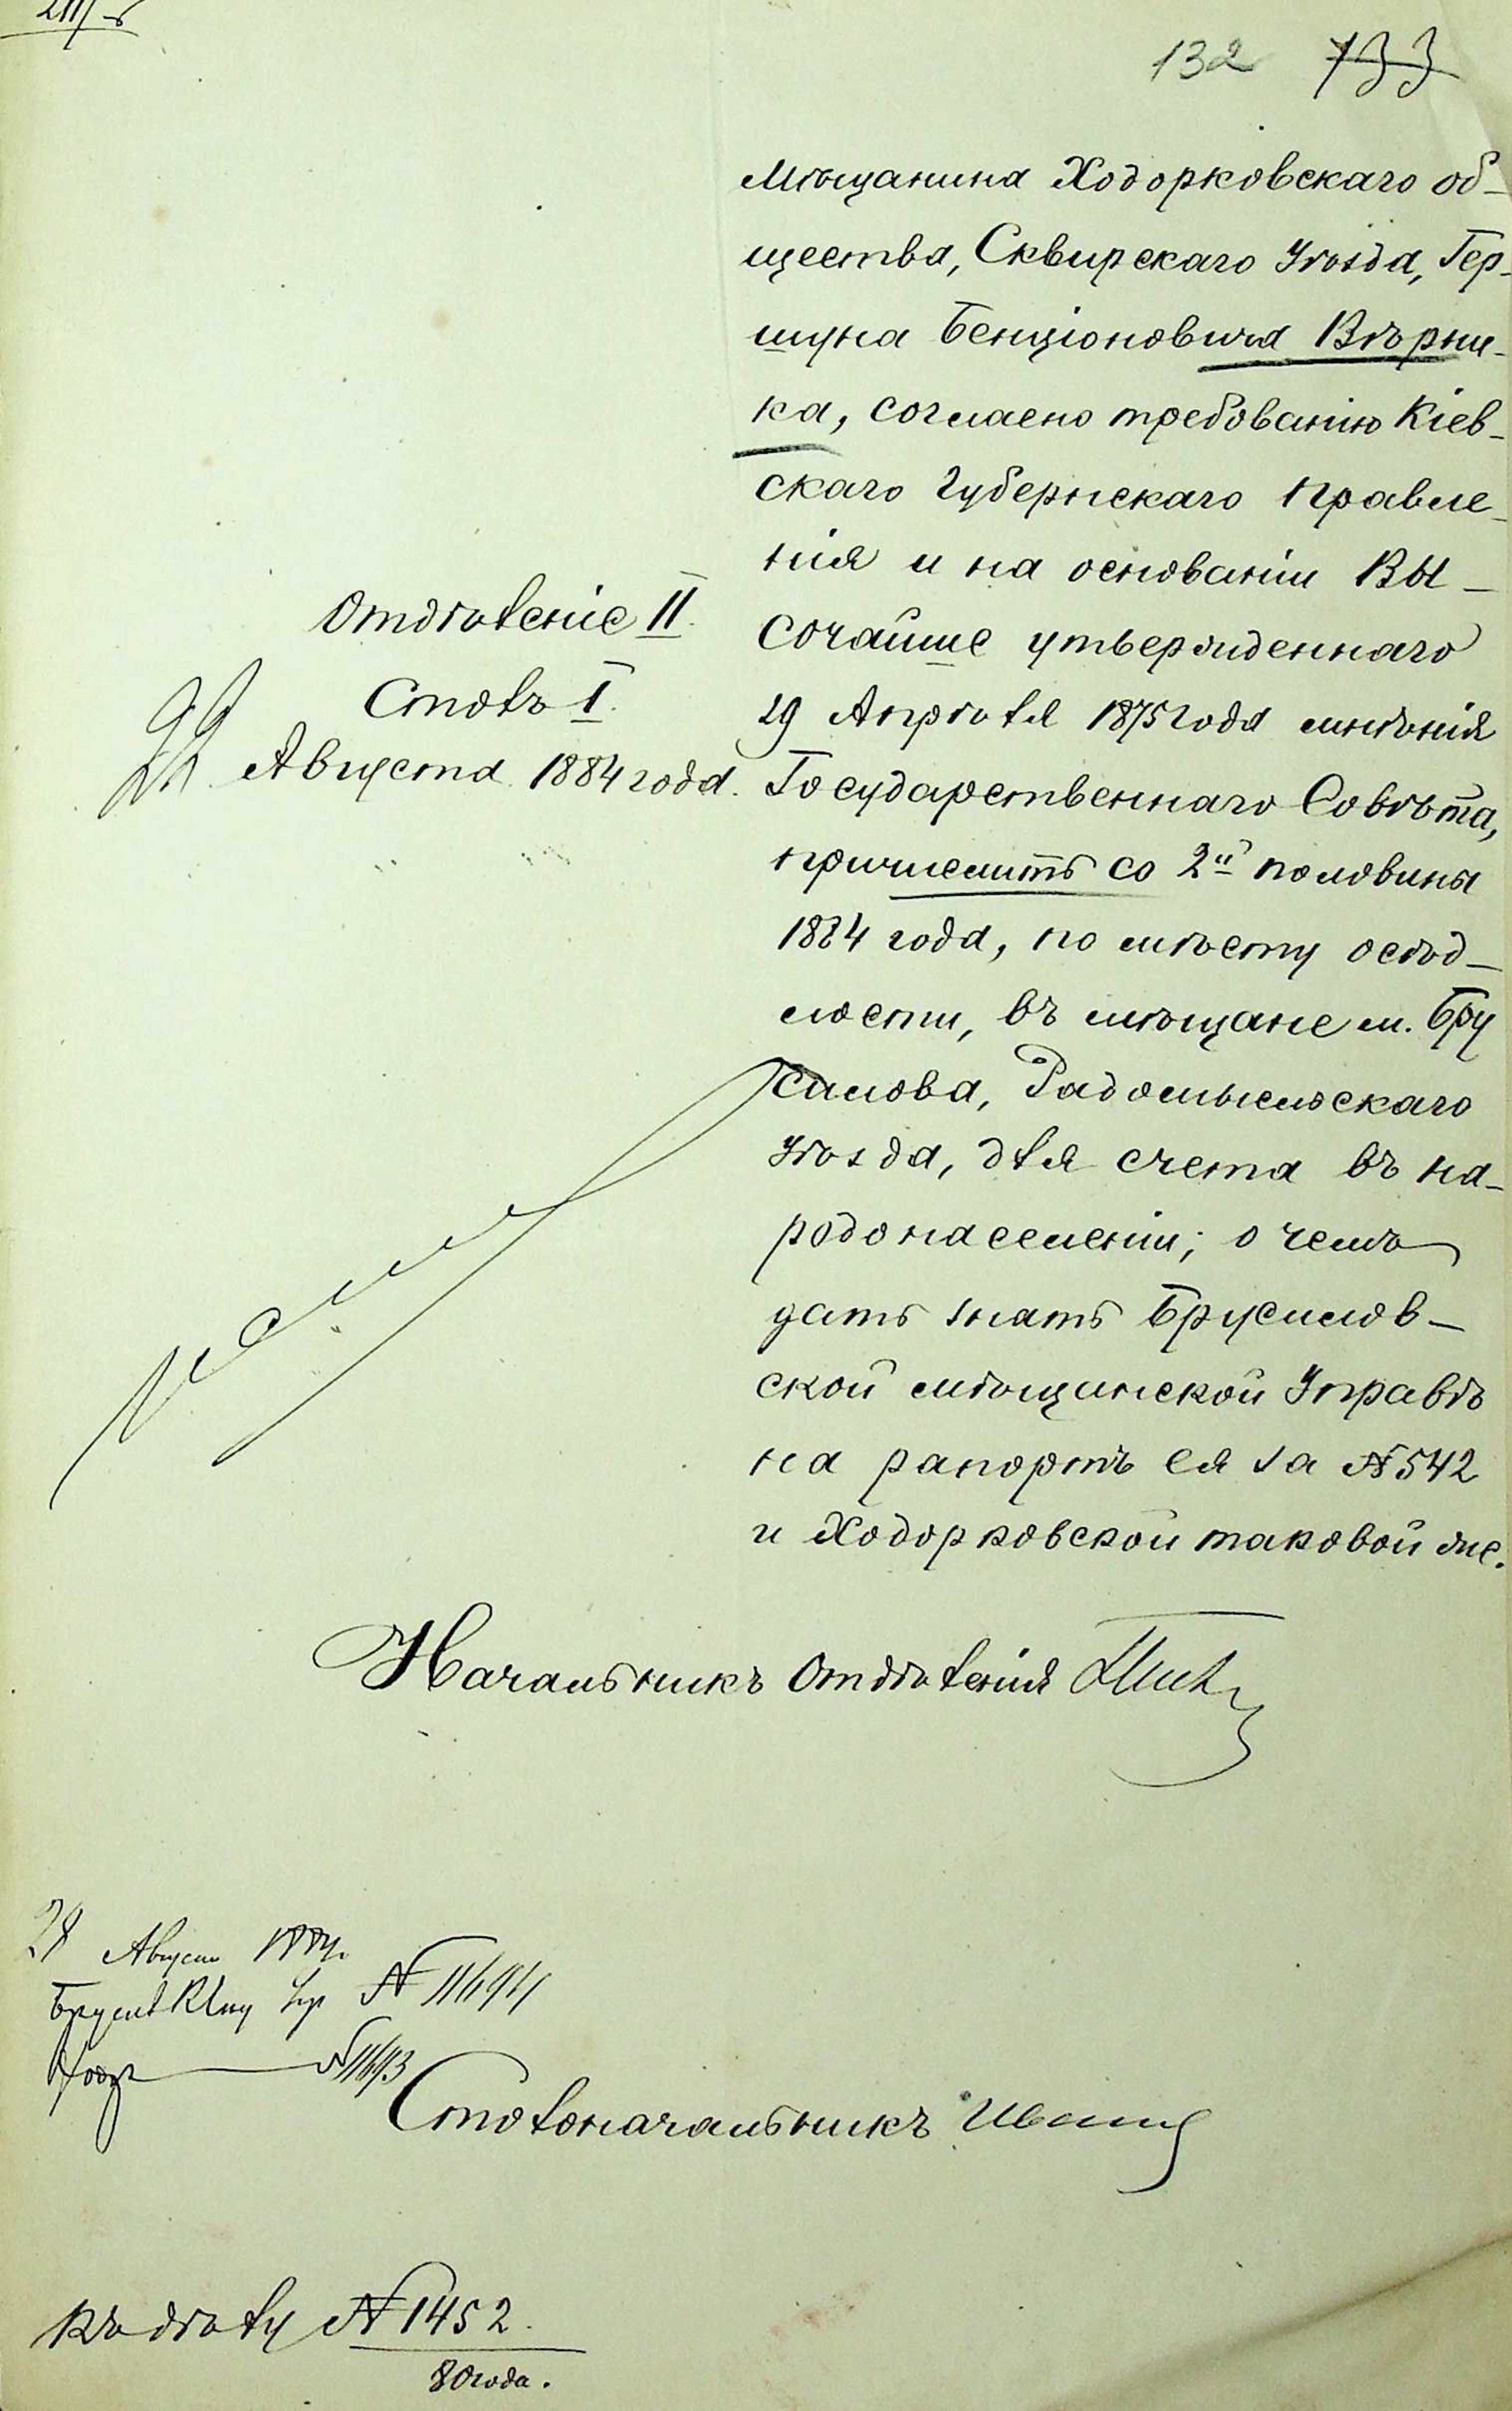 132 133
мѣщанина Ходорковскаго об-
щества, Сквирскаго Уѣзда, Гер-
шуна Бенціоновича Вѣрни-
ка, согласно требованію Кіев-
скаго Губернскаго Правле-
нія и на основаніи ВЫ-
Сочайше утвержденнаго
29 Апрѣля 1875 года мнѣнія
Государственнаго Совѣта,
причислить со 2й половины
1884 года, по мѣсту осѣд-
лости, въ мѣщане м. Бру
силова, Радомысльскаго
Уѣзда, для счета въ на-
родонаселеніи; о чемъ
дать знать Брусилов-
ской мѣщанской Управѣ
на рапортъ ея за № 542
и Ходорковской таковой же.
Отдѣленіе II.
Столъ I.
Августа 1884 года.
Начальникъ Отдѣленія
28 Августа 1884 г.
№ 11694
№ 11693
Столоначальникъ
Къ дѣлу № 1452.
80 года.